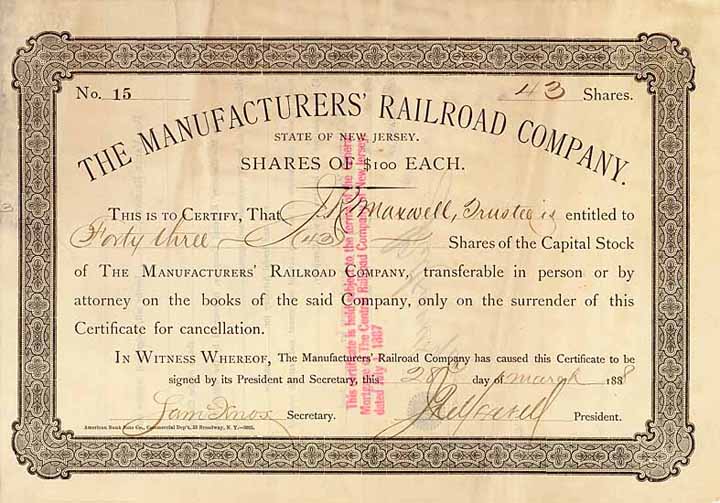 No. 15
43 Shares.
THE MANUFACTURERS' RAILROAD COMPANY.
STATE OF NEW JERSEY.
SHARES OF $100 EACH.
THIS IS TO CERTIFY, That J. R. Maxwell, Trustee is entitled to
Forty three (43) Shares of the Capital Stock
of THE MANUFACTURERS' RAILROAD COMPANY, transferable in person or by
attorney on the books of the said Company, only on the surrender of this
Certificate for cancellation.
IN WITNESS WHEREOF, The Manufacturers' Railroad Company has caused this Certificate to be
signed by its President and Secretary, this 28th day of March 1888
Sam Knox Secretary.
President.
American Bank Note Co., Commercial Dep't, 53 Broadway, N. Y.
This Certificate is held subject to the terms of the
Mortgage of The Central Railroad Company of New Jersey
dated July 1, 1887